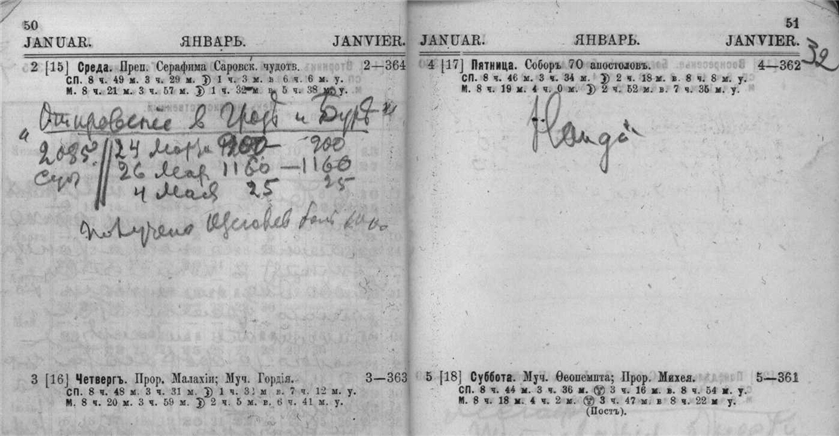 50
JANUAR. ЯНВАРЬ. JANVIER.
2 [15] Среда. Преп. Серафима Саровск. чудотв. 2—364
СП. 8 ч. 49 м. 3 ч. 29 м. 1 ч. 3 м. в 6 ч. 6 м. у.
М. 8 ч. 21 м. 3 ч. 57 м. 1 ч. 32 м. в 5 ч. 38 м. у.
"Откровение в Грозѣ и Бурѣ"
2085 24 Марта 900 900
26 Мар 1160—1160
4 Мая 25 25
получено
3 [16] Четвергъ. Прор. Малахіи; Муч. Гордія. 3—363
СП. 8 ч. 48 м. 3 ч. 31 м. 1 ч. 31 м. в 7 ч. 12 м. у.
М. 8 ч. 20 м. 3 ч. 59 м. 2 ч. 5 м. в. 6 ч. 41 м. у.
51
JANUAR. ЯНВАРЬ. JANVIER.
32
4 [17] Пятница. Соборъ 70 апостоловъ. 4—362
СП. 8 ч. 46 м. 3 ч. 34 м. 2 ч. 18 м. в. 8 ч. 8 м. у.
М. 8 ч. 19 м. 4 ч. 0 м. 2 ч. 52 м. в. 7 ч. 35 м. у.
5 [18] Суббота. Муч. Ѳеопемпта; Прор. Михея. 5—361
СП. 8 ч. 44 м. 3 ч. 36 м. 3 ч. 16 м. в. 8 ч. 54 м. у.
М. 8 ч. 18 м. 4 ч. 2 м. 3 ч. 47 м. в 8 ч. 22 м у.
(Постъ).